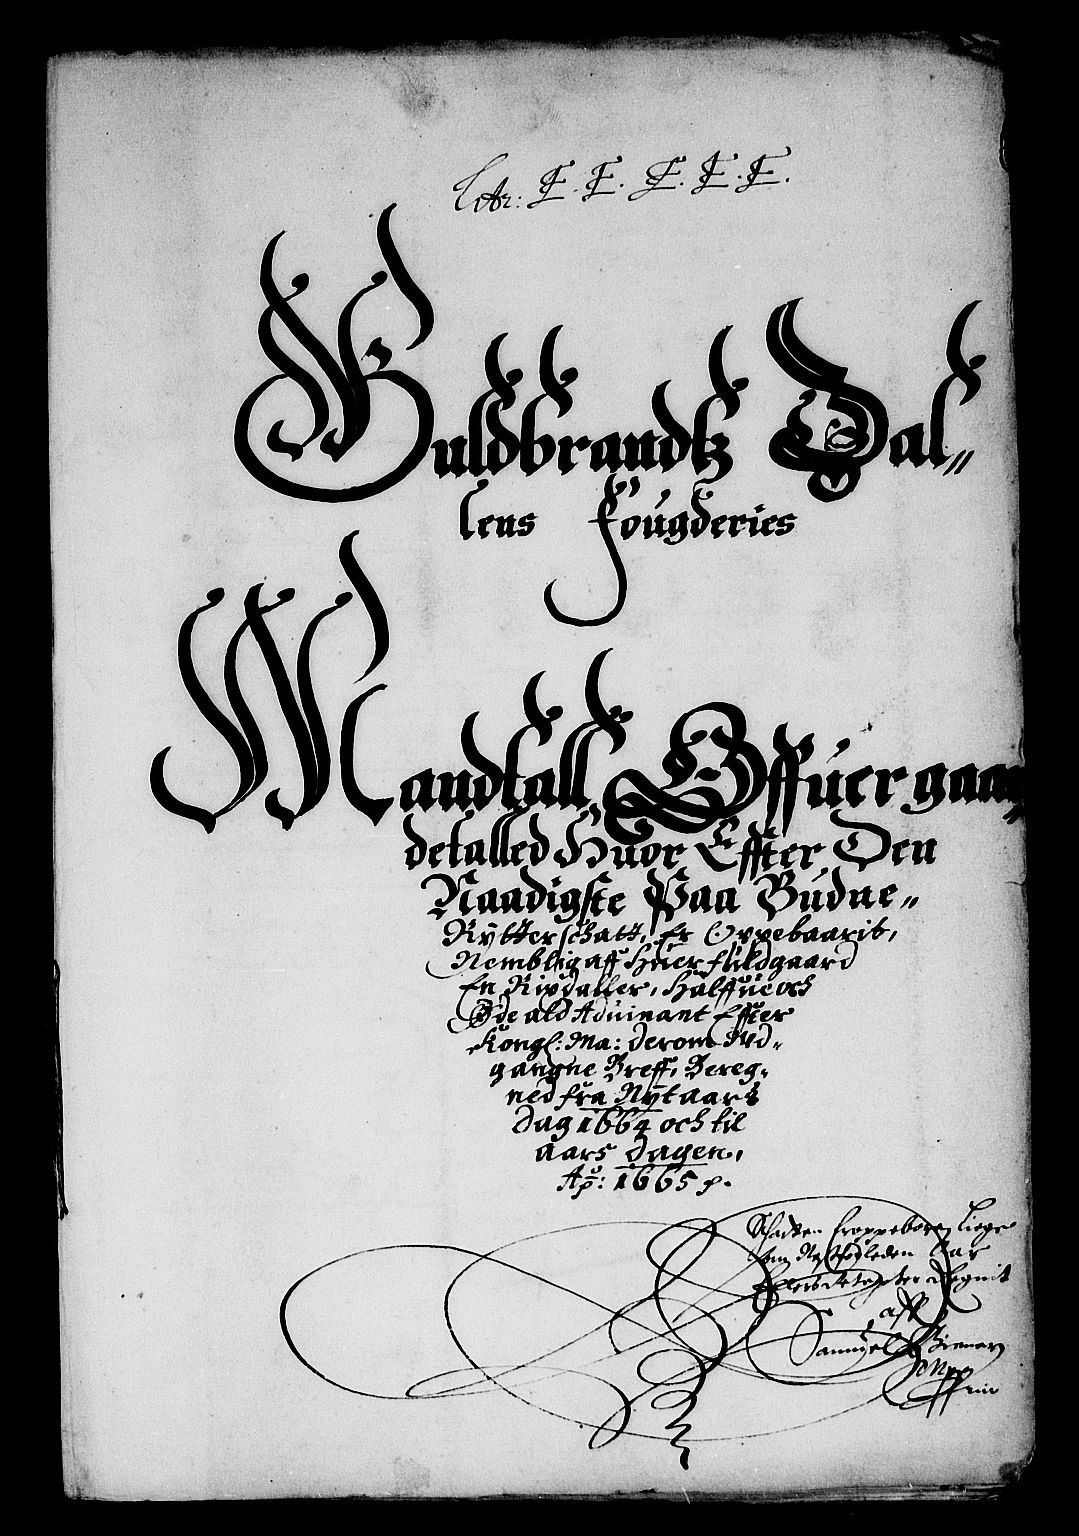 Litr: E. E. E. E. E.
Guldbrandtz Dal„
lens Fougderies
Mandtall, Offuer gaar„
detalled Huor Effter Den
Naadigste Paa Budne„
Rytter schatt, Er Oppebaarit,
Nemblig aff Huer fuldgaard
En Rixdaller, Halffue och
Øde ald Aduinant Effter
Kongl: Ma: derom Ud„
gangne Breff, Bereg„
ned fra Nytaars
dag 1664 och til
aars dagen,
Ao: 1665 p.
Schatten
Aar
aff
Samuel